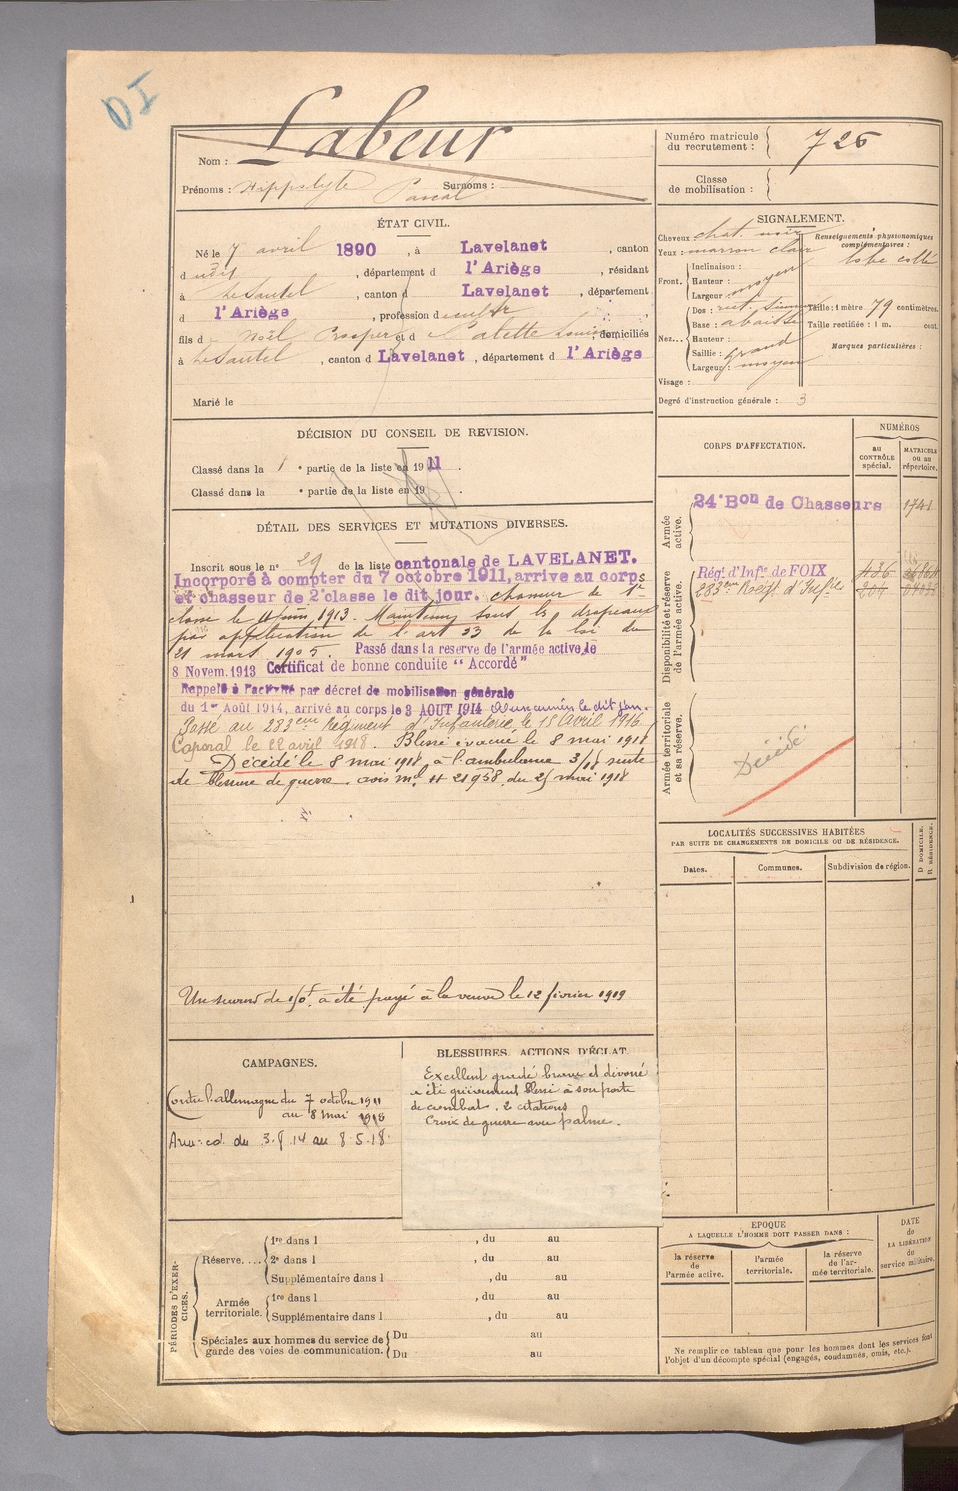 Labeur
Nom :
Prénoms : Hippolyte Pascal Surnoms :
ÉTAT CIVIL.
Né le 7 avril 1890, à Lavelanet, canton
d udit, département d l'Ariège, résidant
à Le Sautel, canton d Lavelanet, département
d l'Ariège, profession d
fils d Noël Prosper et d Louise, domiciliés
à Le Sautel, canton d Lavelanet, département d l'Ariège
Marié le
DÉCISION DU CONSEIL DE REVISION.
Classé dans la 1e partie de la liste en 1911.
Classé dans la e partie de la liste en 19 .
DÉTAIL DES SERVICES ET MUTATIONS DIVERSES.
Inscrit sous le n° 29 de la liste cantonale de LAVELANET.
Incorporé à compter du 7 octobre 1911, arrive au corps
et chasseur de 2e classe le dit jour. chasseur de 1e
classe le 11 juin 1913. Maintenu sous les drapeaux
par application de l'art 33 de la loi du
21 mars 1905. Passé dans la reserve de l'armée active le
8 Novem. 1913 Certificat de bonne conduite " Accordé "
Rappelé à l'activité par décret de mobilisation générale
du 1er Août 1914, arrivé au corps le 3 AOUT 1914 le dit jour.
Passé au 283eme Régiment d'Infanterie, le 18 Avril 1916
Caporal le 22 avril 1918. Blessé évacué le 8 mai 1918
Décédé le 8 mai 1918 à l'ambulance 3/18 suite
de blessure de guerre avis ml H 21958 du 25 mai 1918
Un secours de 150f a été payé à la veuve le 12 février 1919
CAMPAGNES.
Contre l'allemagne du 7 octobre 1911
au 8 mai 1918
du 3.8.14 au 8.5.18
BLESSURES, ACTIONS D'ÉCLAT.
Excellent gradé brave et dévoué
a été grièvement blessé à son poste
de combat. 2 citations
Croix de guerre avec palme.
PÉRIODES D'EXERCICES.
Réserve....
1re dans l , du au
2e dans l , du au
Supplémentaire dans l , du au
Armée territoriale.
1re dans l , du au
Supplémentaire dans l , du au
Spéciales aux hommes du service de garde des voies de communication.
Du au
Du au
Numéro matricule du recrutement : 726
Classe de mobilisation :
SIGNALEMENT.
Cheveux chat. noir
Yeux : marron clair
Front.
Inclinaison :
Hauteur :
Largeur : moyen
Nez...
Dos : rect. sinueux
Base : abaissée
Hauteur :
Saillie : grand
Largeur : moyen
Visage :
Degré d'instruction générale : 3
Renseignements physionomiques complémentaires :
lobe collé
Taille : 1 mètre 79 centimètres.
Taille rectifiée : 1 m. cent.
Marques particulières :
CORPS D'AFFECTATION.
NUMÉROS
au CONTRÔLE spécial.
MATRICULE ou au répertoire.
Armée active.
24e Bon de Chasseurs 1741
Disponibilité et réserve de l'armée active.
Régt d'Infie de FOIX 436
283eme Régt d'Infie
Armée territoriale et sa réserve.
Décédé
LOCALITÉS SUCCESSIVES HABITÉES
PAR SUITE DE CHANGEMENTS DE DOMICILE OU DE RÉSIDENCE.
Dates. Communes. Subdivision de région.
D DOMICILE.
R RÉSIDENCE.
EPOQUE
A LAQUELLE L'HOMME DOIT PASSER DANS :
la réserve de l'armée active.
l'armée territoriale.
la réserve de l'armée territoriale.
DATE de LA LIBÉRATION du service militaire.
Ne remplir ce tableau que pour les hommes dont les services font
l'objet d'un décompte spécial (engagés, condamnés, omis, etc.).